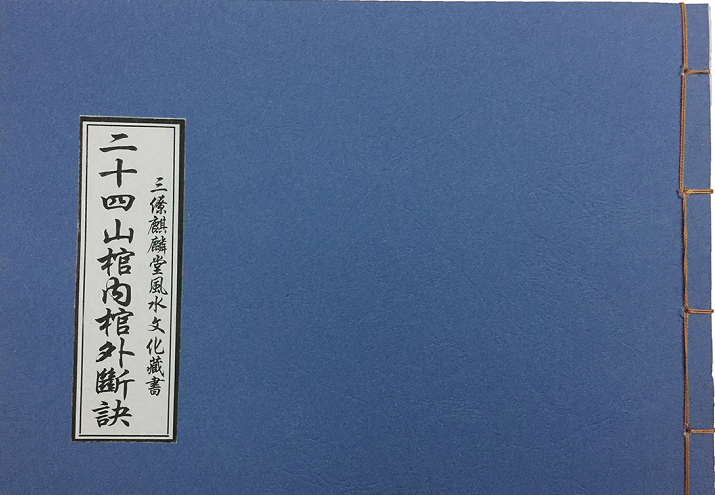 三僚麒麟堂風水文化藏書
二十四山棺內棺外斷訣